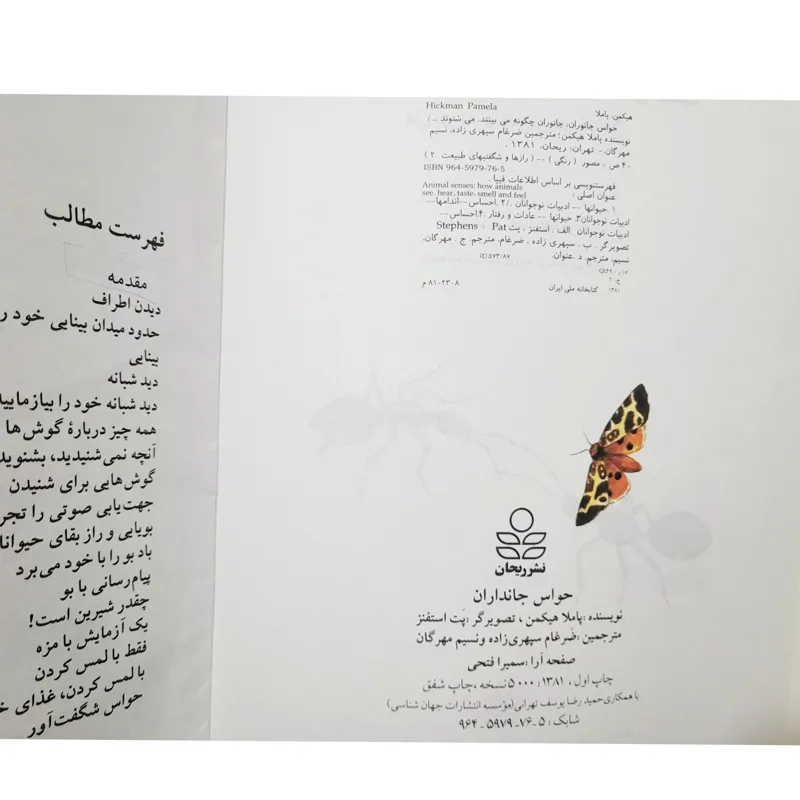 Hickman Pamela
هیکمن، پاملا
حواس جانوران: جانوران چگونه می بینند، می شنوند .../
نویسنده پاملا هیکمن؛ مترجمین ضرغام سپهری زاده، نسیم
مهرگان. - تهران: ریحان، ۱۳۸۱.
۴۰ ص. مصور (رنگی) -- (رازها و شگفتیهای طبیعت ۲)
ISBN 964-5979-76-5
فهرستنویسی بر اساس اطلاعات فیپا.
عنوان اصلی: Animal senses: how animals
see, hear, taste, smell and feel
۱. حیوانها -- ادبیات نوجوانان. ۲. احساس--اندامها--
ادبیات نوجوانان ۳. حیوانها -- عادات و رفتار. ۴. احساس--
ادبیات نوجوانان. الف. استفنز، پت Stephens ، Pat
تصویرگر. ب. سپهری زاده، ضرغام، مترجم. ج. مهرگان،
نسیم، مترجم. د. عنوان.
۵۷۳/۸۷ [ج]
۱۳۸۱
کتابخانه ملی ایران
۸۱-۲۳۰۸ م
نشر ریحان
حواس جانداران
نویسنده: پاملا هیکمن ، تصویرگر: پَت استفنز
مترجمین: ضَرغام سپهری‌زاده و نسیم مهرگان
صفحه آرا: سمیرا فتحی
چاپ اول ، ۱۳۸۱: ۵۰۰۰ نسخه ، چاپ شفق
با همکاری حمید رضا یوسف تهرانی (مؤسسه انتشارات جهان شناسی)
شابک: ۵ -۷۶- ۵۹۷۹ - ۹۶۴
فهرست مطالب
مقدمه
دیدن اطراف
حدود میدان بینایی خود ر
بینایی
دید شبانه
دید شبانه خود را بیازمایید
همه چیز دربارهٔ گوش‌ها
آنچه نمی‌شنیدید، بشنوید
گوش‌هایی برای شنیدن
جهت‌یابی صوتی را تجر
بویایی و راز بقای حیوانا
باد بو را با خود می‌برد
پیام‌رسانی با بو
چقدر شیرین است!
یک آزمایش با مزه
فقط با لمس کردن
با لمس کردن، غذای خ
حواس شگفت‌آور